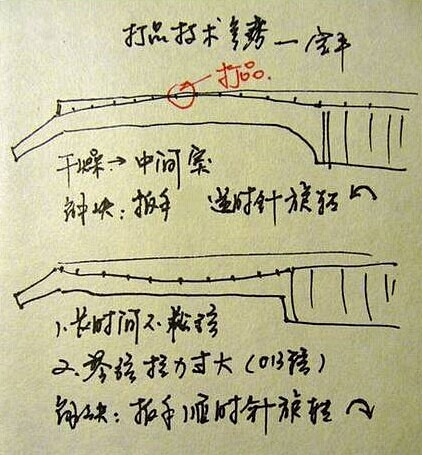 打品技术参考—实丰
打品.
干燥→中间突
解决:扳手 逆时针旋转
1.长时间不松弦
2.琴弦拉力过大(013弦)
解决:扳手顺时针旋转